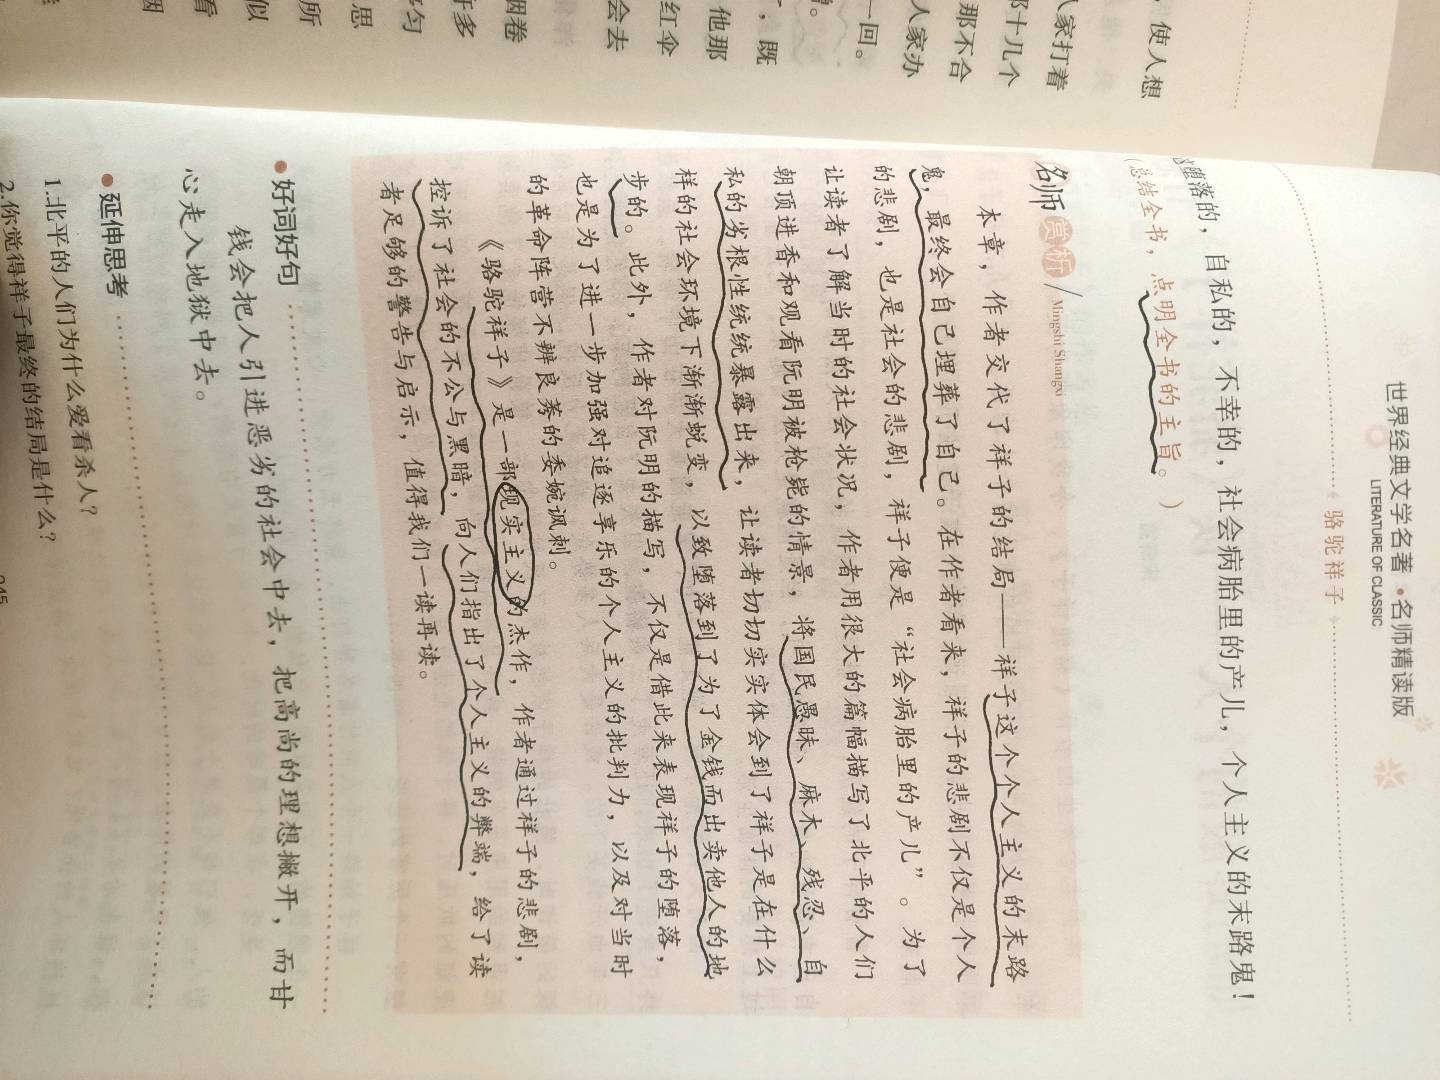 ，使人想
人家打着
那十几个
那不合
人家办
一回。
，既
他那
红伞
会去
烟卷
许多
思
所
似
看
世界经典文学名著·名师精读版
LITERATURE OF CLASSIC
骆驼祥子
堕落的，自私的，不幸的，社会病胎里的产儿，个人主义的末路鬼！
（总结全书，点明全书的主旨。）
名师赏析 Mingshi Shangxi
本章，作者交代了祥子的结局——祥子这个个人主义的末路
鬼，最终会自己埋葬了自己。在作者看来，祥子的悲剧不仅是个人
的悲剧，也是社会的悲剧，祥子便是“社会病胎里的产儿”。为了
让读者了解当时的社会状况，作者用很大的篇幅描写了北平的人们
朝顶进香和观看阮明被枪毙的情景，将国民愚昧、麻木、残忍、自
私的劣根性统统暴露出来，让读者切切实实体会到了祥子是在什么
样的社会环境下渐渐蜕变，以致堕落到了为了金钱而出卖他人的地
步的。此外，作者对阮明的描写，不仅是借此来表现祥子的堕落，
也是为了进一步加强对追逐享乐的个人主义的批判力，以及对当时
的革命阵营不辨良莠的委婉讽刺。
《骆驼祥子》是一部现实主义的杰作，作者通过祥子的悲剧，
控诉了社会的不公与黑暗，向人们指出了个人主义的弊端，给了读
者足够的警告与启示，值得我们一读再读。
●好词好句
钱会把人引进恶劣的社会中去，把高尚的理想撇开，而甘
心走入地狱中去。
●延伸思考
1.北平的人们为什么爱看杀人？
2.你觉得祥子最终的结局是什么？
245